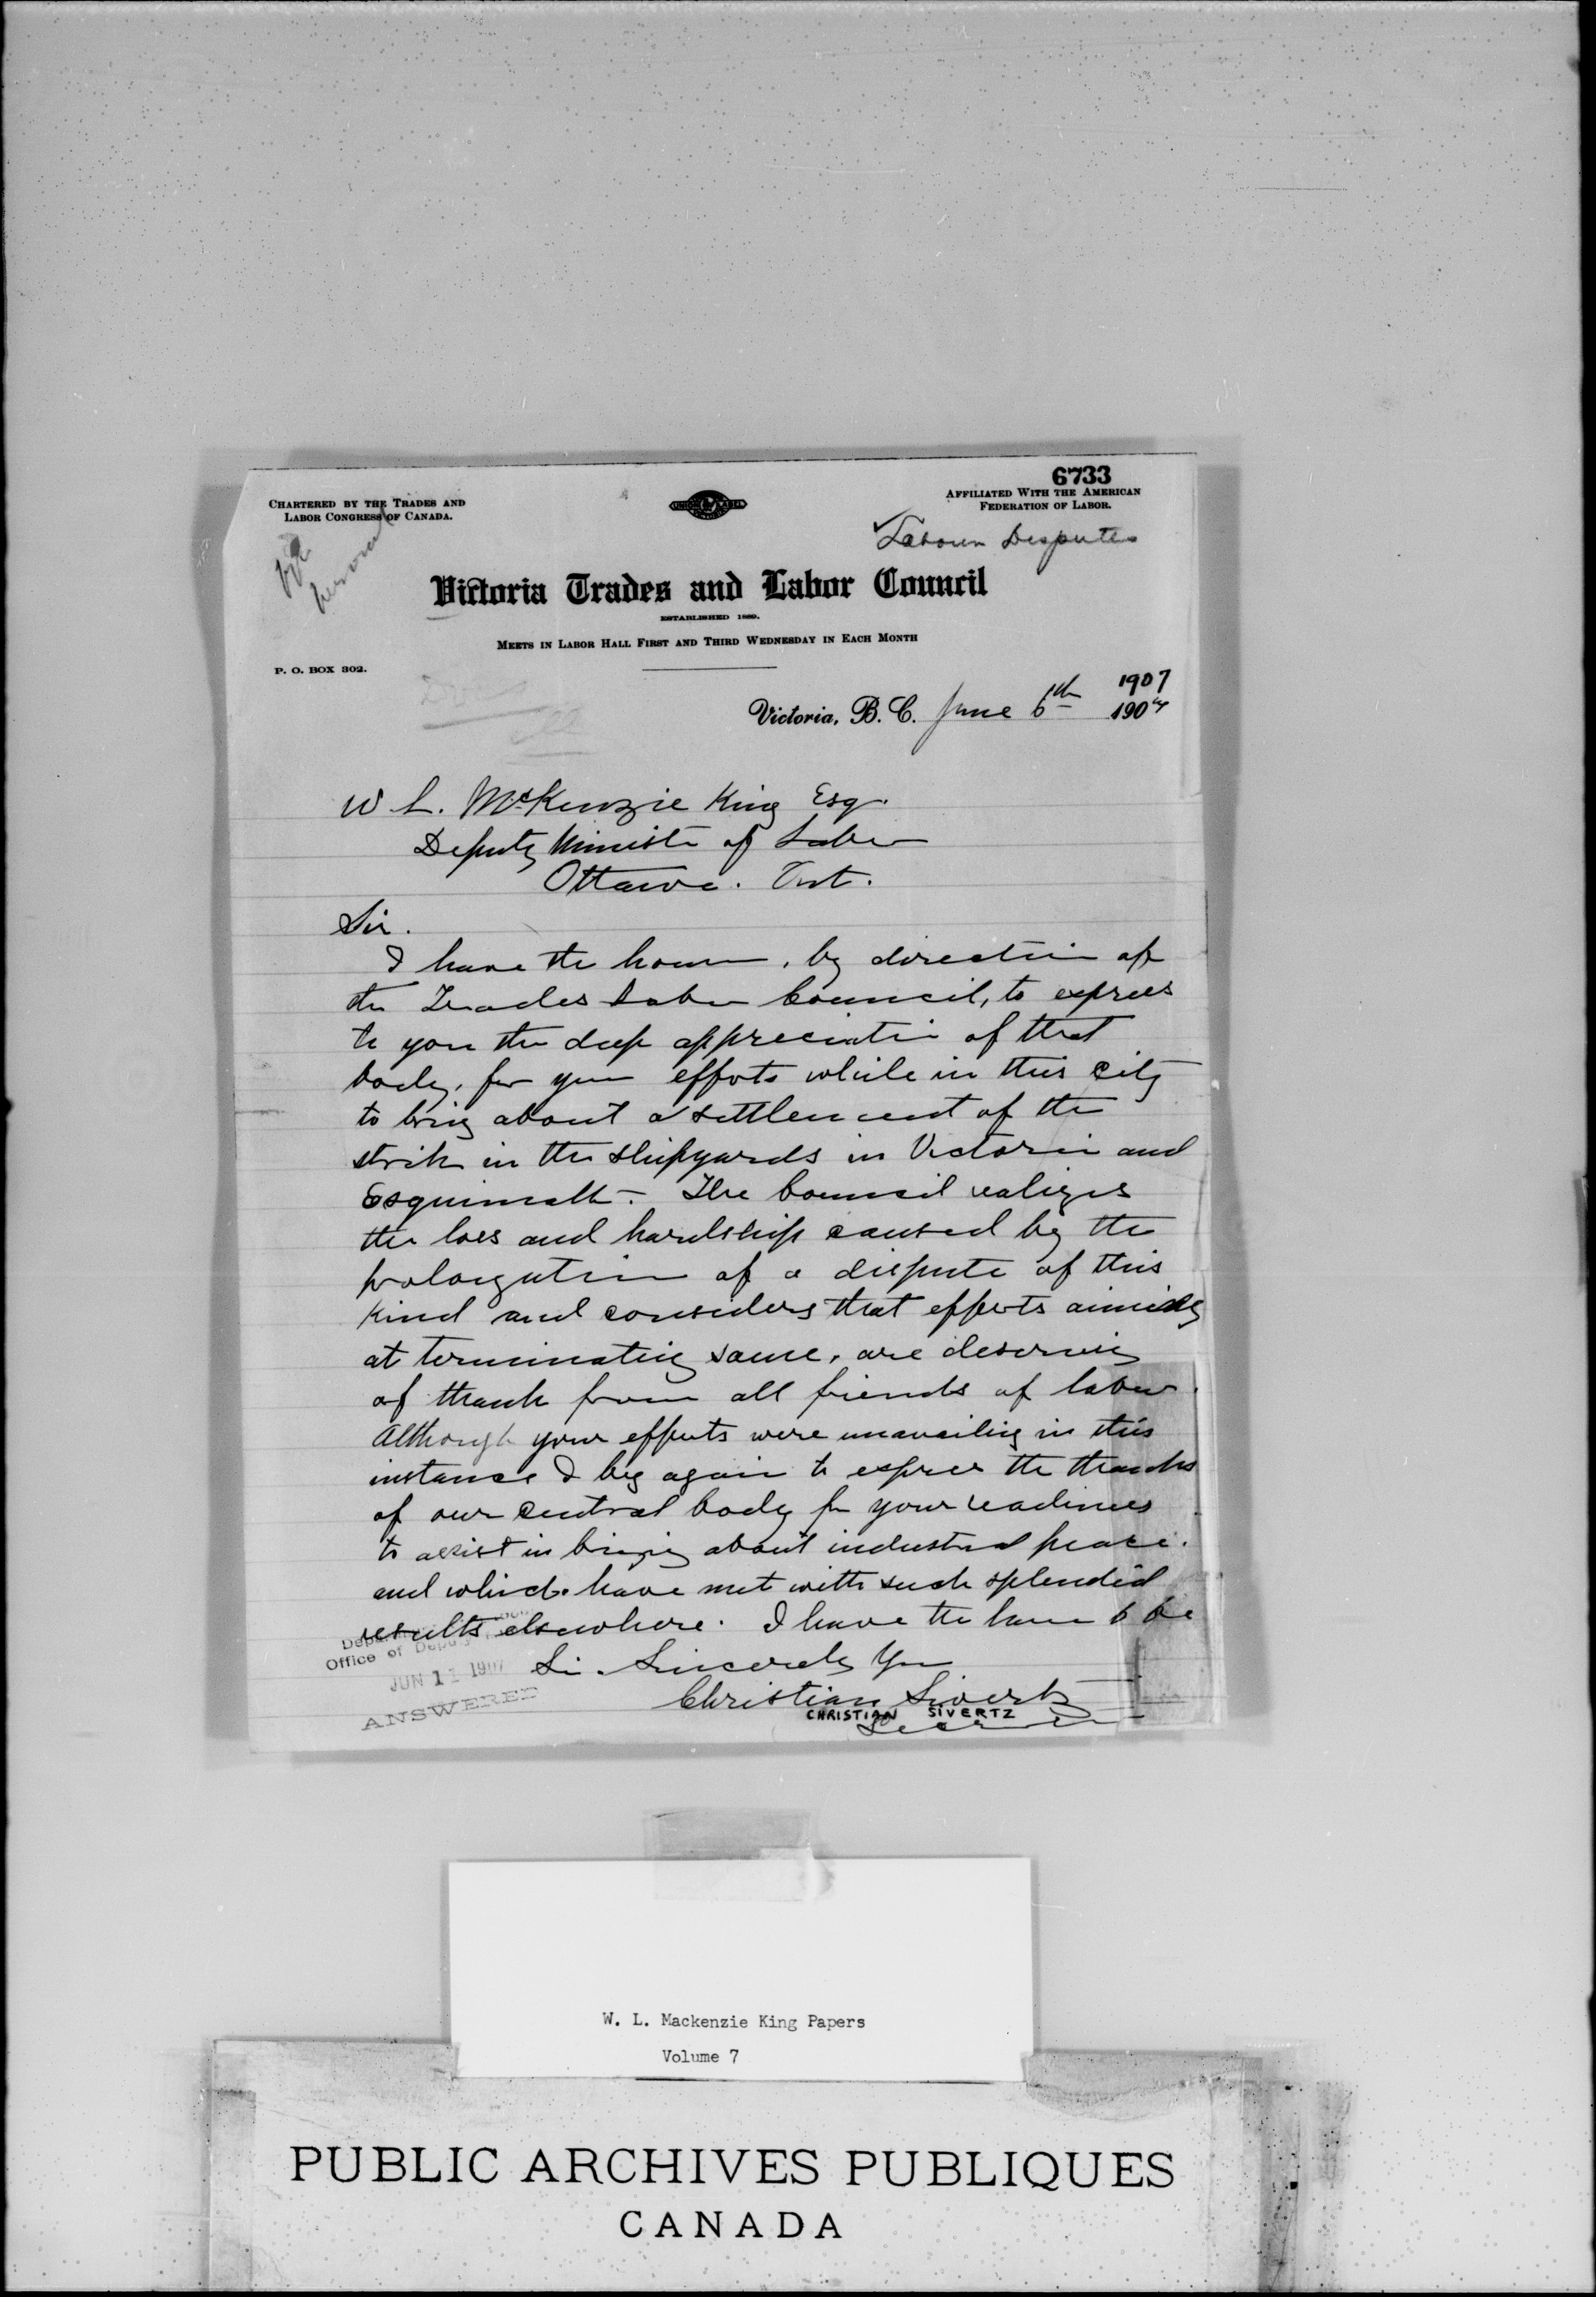 6733
CHARTERED BY THE TRADES AND
LABOR CONGRESS OF CANADA.
UNION LABEL
AFFILIATED WITH THE AMERICAN
FEDERATION OF LABOR.
Labour Disputes
personal
Victoria Trades and Labor Council
ESTABLISHED 1889.
MEETS IN LABOR HALL FIRST AND THIRD WEDNESDAY IN EACH MONTH
P. O. BOX 302.
1907
Victoria, B. C. June 6th 1907
W L. McKenzie King Esq.
Deputy Minister of Labor
Ottawa. Ont.
Sir.
I have the honor, by direction of
the Trades Labor Council, to express
to you the deep appreciation of that
body, for your efforts while in this city
to bring about a settlement of the
strike in the shipyards in Victoria and
Esquimalt. The Council realizes
the loss and hardship caused by the
prolongation of a dispute of this
kind and considers that efforts aiming
at terminating same, are deserving
of thank from all friends of labor.
Although your efforts were unavailing in this
instance I beg again to express the thanks
of our central body for your readiness
to assist in bringing about industrial peace.
and which have met with such splendid
results elsewhere. I have the honor to be
Sir. Sincerely Yours
Christian Sivertz
CHRISTIAN SIVERTZ
Secretary
Office of Deputy
JUN 11 1907
ANSWERED
W. L. Mackenzie King Papers
Volume 7
PUBLIC ARCHIVES PUBLIQUES
CANADA